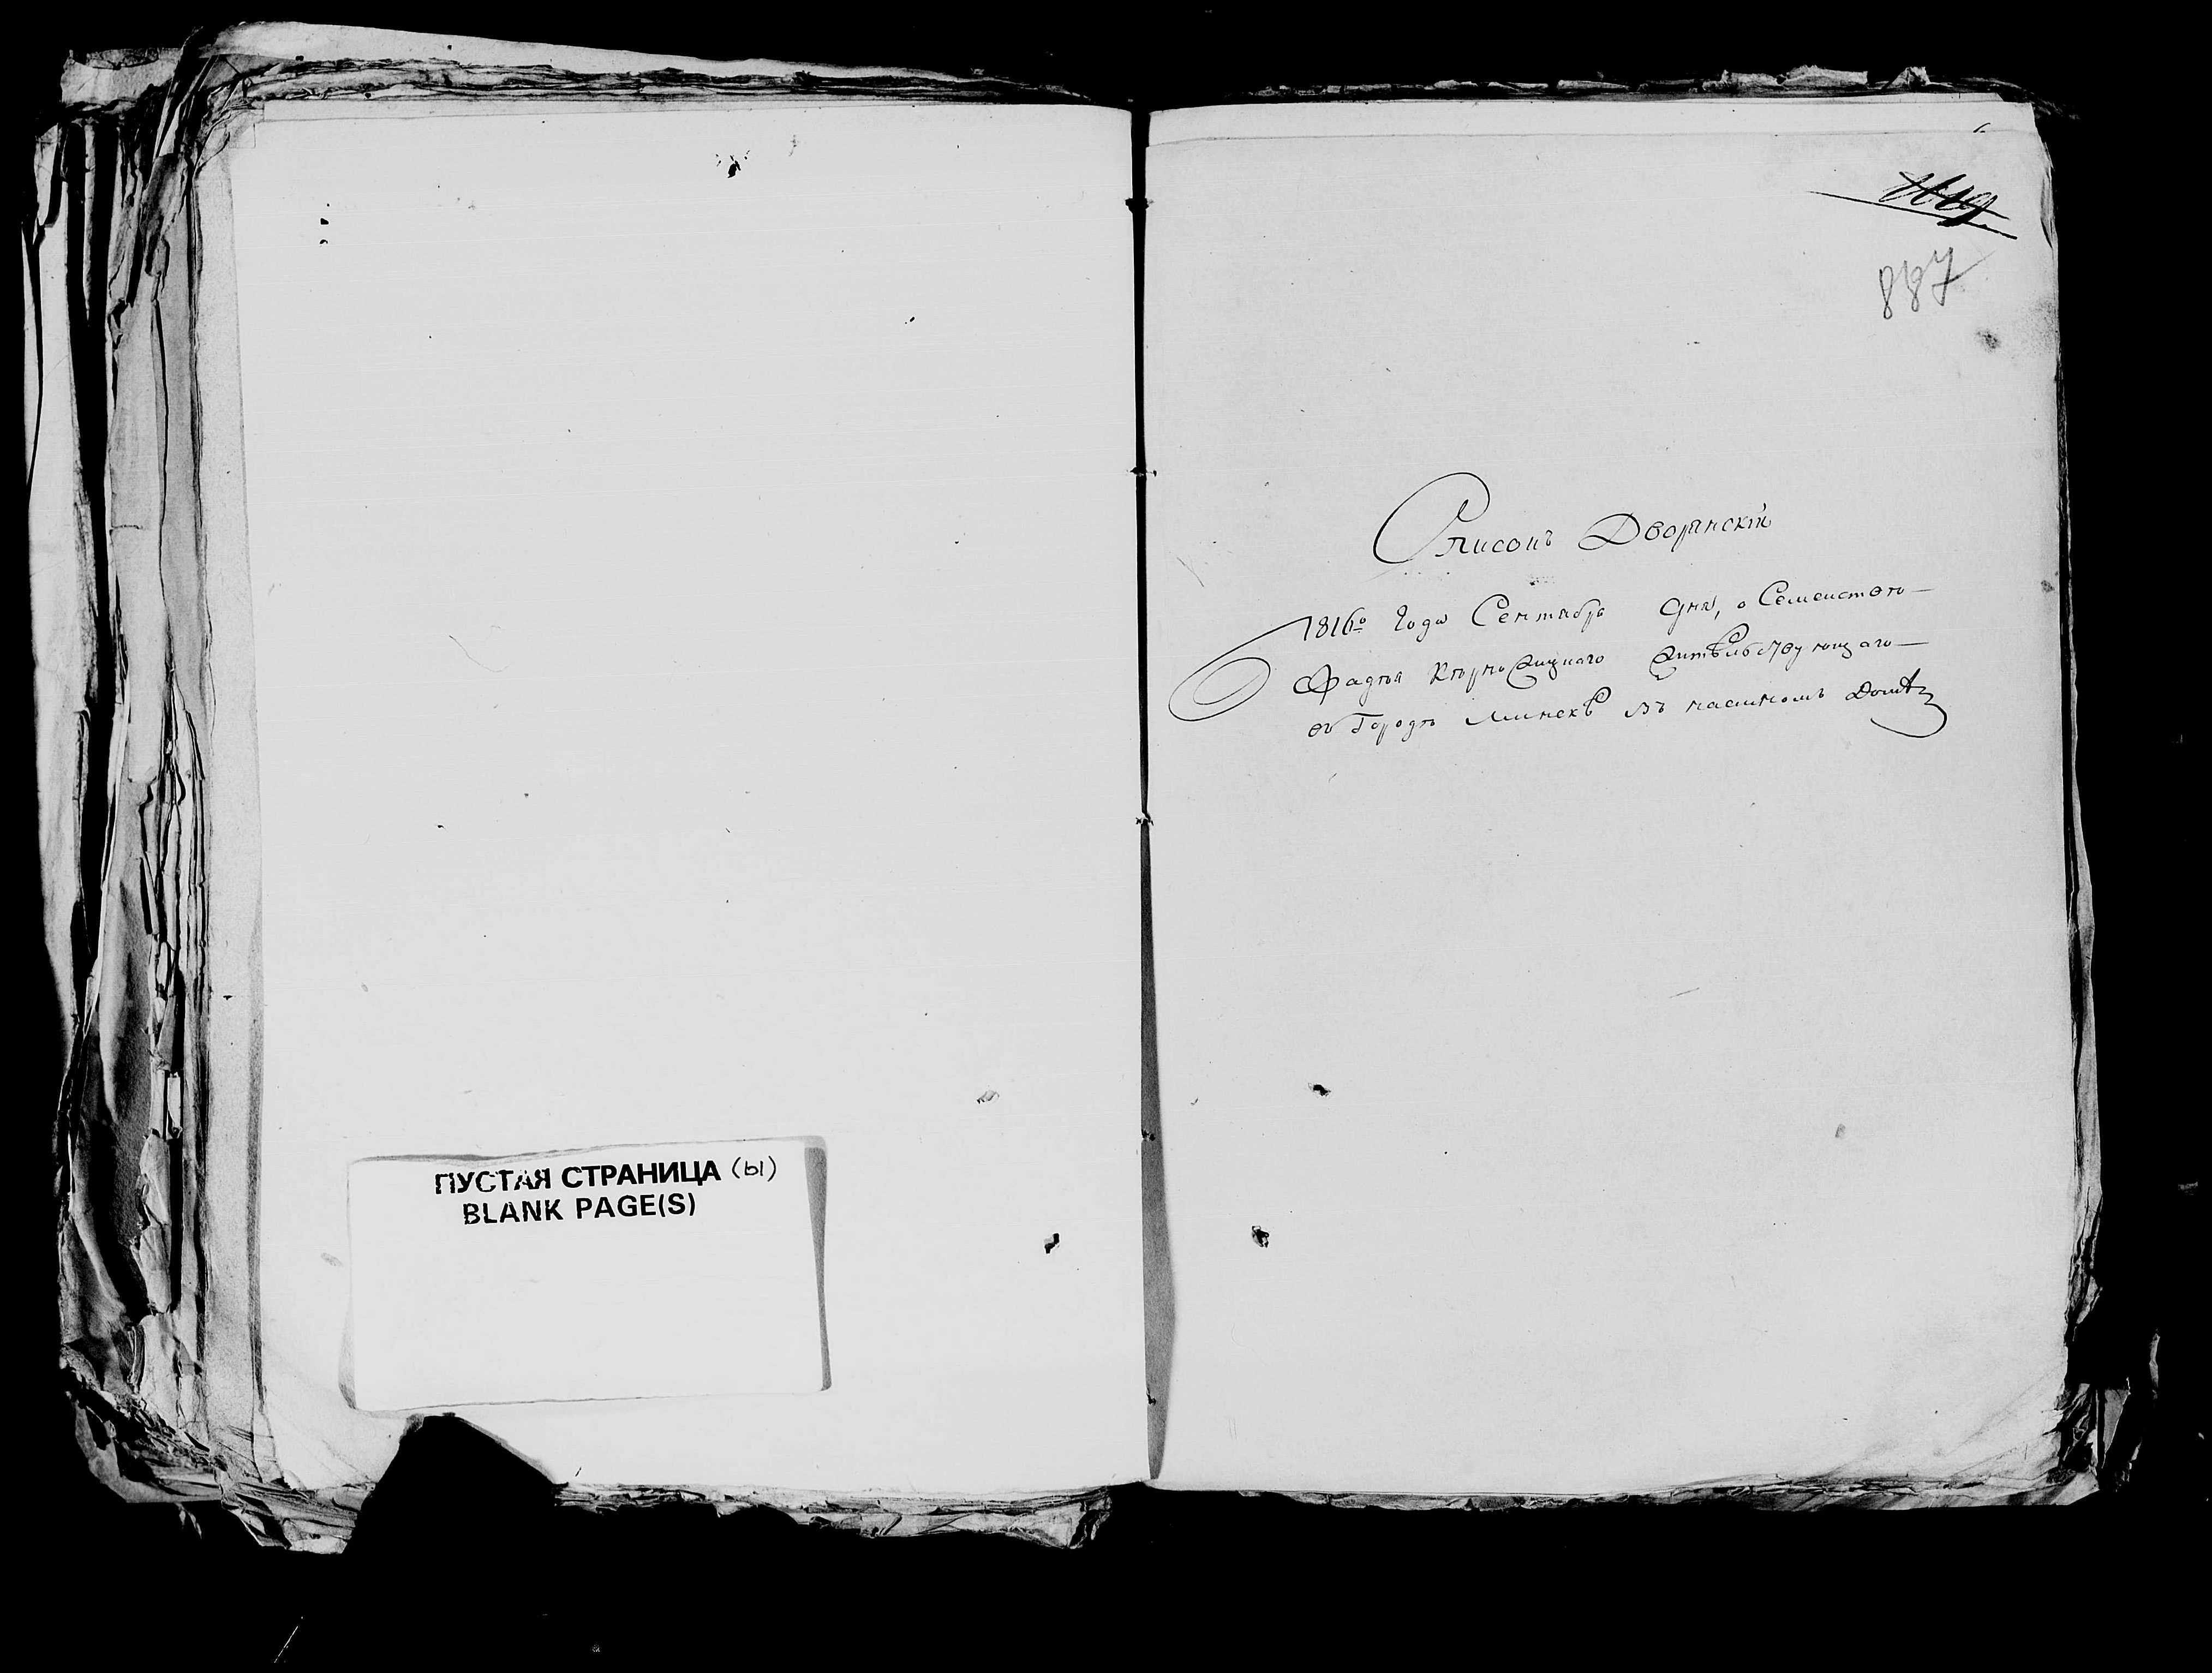 ПУСТАЯ СТРАНИЦА (ы)
BLANK PAGE(S)
887
Списокъ Дворянскій
1816го Года Сентября дня, о Семействѣ
Фадѣя жительствующаго
въ Городѣ Минскѣ въ наемномъ Домѣ